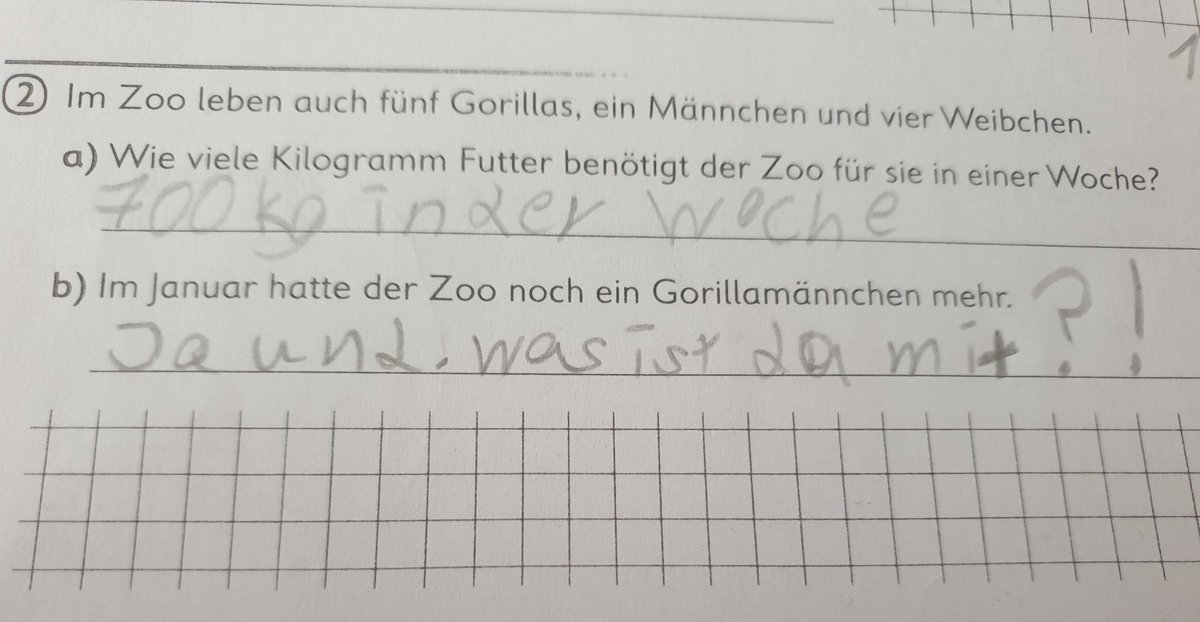 1
② Im Zoo leben auch fünf Gorillas, ein Männchen und vier Weibchen.
a) Wie viele Kilogramm Futter benötigt der Zoo für sie in einer Woche?
700 kg in der Woche
b) Im Januar hatte der Zoo noch ein Gorillamännchen mehr.
Ja und. was ist da mit?!